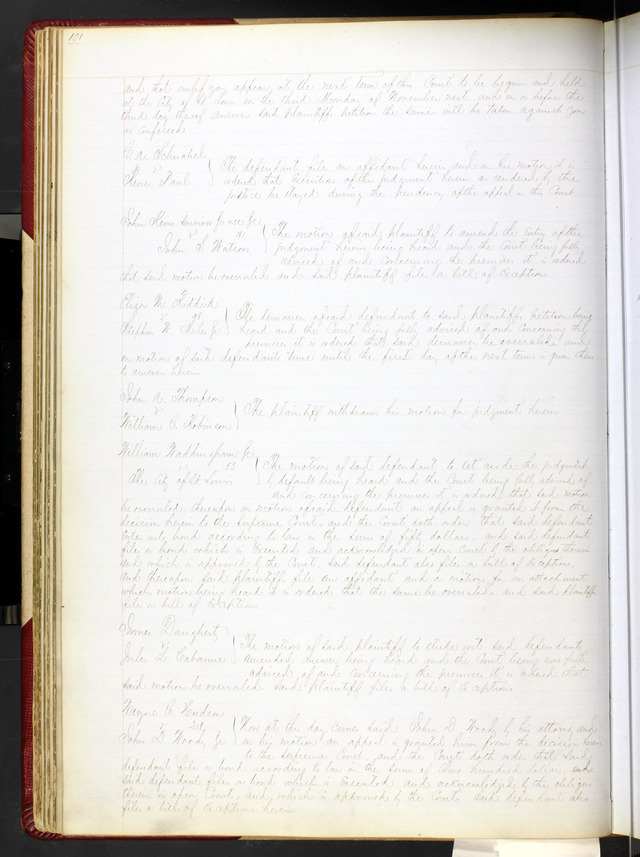 101
and that unless you appear at the next term of this Court to be begun and held
at the City of St Louis on the third Monday of November next and on or before the
third day thereof answer said plaintiffs petition the same will be taken against you
as confessed
Schnabel
vs
Paul
The defendant files an affidavit herein and on his motion it is
ordered that execution of the judgment herein rendered by the
justice be stayed during the pendency of the appeal in this Court
John
vs
John S Watson
The motion of said plaintiff to amend the entry of the
judgment herein being heard and the Court being fully
advised of and concerning the premises it is ordered
that said motion be overruled and said plaintiff files a bill of exceptions
Eliza
vs
Stephen W
The demurrer of said defendant to said plaintiffs petition being
heard and the Court being fully advised of and concerning the
premises it is ordered that said demurrer be overruled and
on motion of said defendants time until the first day of the next term is given them
to answer herein
John N. Thompson
vs
William C Robinson
The plaintiff withdraws his motion for judgment herein
William Waddingham
vs 53
The City of St Louis
The motion of said defendant to set aside the judgment
by default being heard and the Court being fully advised of
and concerning the premises it is ordered that said motion
be overruled, thereupon on motion of said defendant an appeal is granted it from the
decision herein to the Supreme Court, and the Court doth order that said defendant
enter into bond according to law in the sum of fifty dollars, and said defendant
files a bond which is executed and acknowledged in open Court by the obligors therein
and which is approved by the Court, said defendant also files a bill of exceptions,
And thereupon said plaintiff files an affidavit and a motion for an attachment
which motion being heard it is ordered that the same be overruled and said plaintiff
files a bill of exceptions
James Daugherty
vs
Jules L Cabanne
The motion of said plaintiff to strike out said defendants
amended answer being heard and the Court being now fully
advised of and concerning the premises it is ordered that
said motion be overruled said plaintiff files a bill of exceptions
Wayne C
vs
John D. Woody
Now at this day comes said John D Woody by his attorney and
on his motion an appeal is granted him from the decision herein
to the Supreme Court and the Court doth order that said
defendant file a bond according to law in the sum of hundred dollars, and
said defendant files a bond which is executed and acknowledged by the obligors
therein in open Court, and which is approved by the Court said defendant also
files a bill of exceptions herein